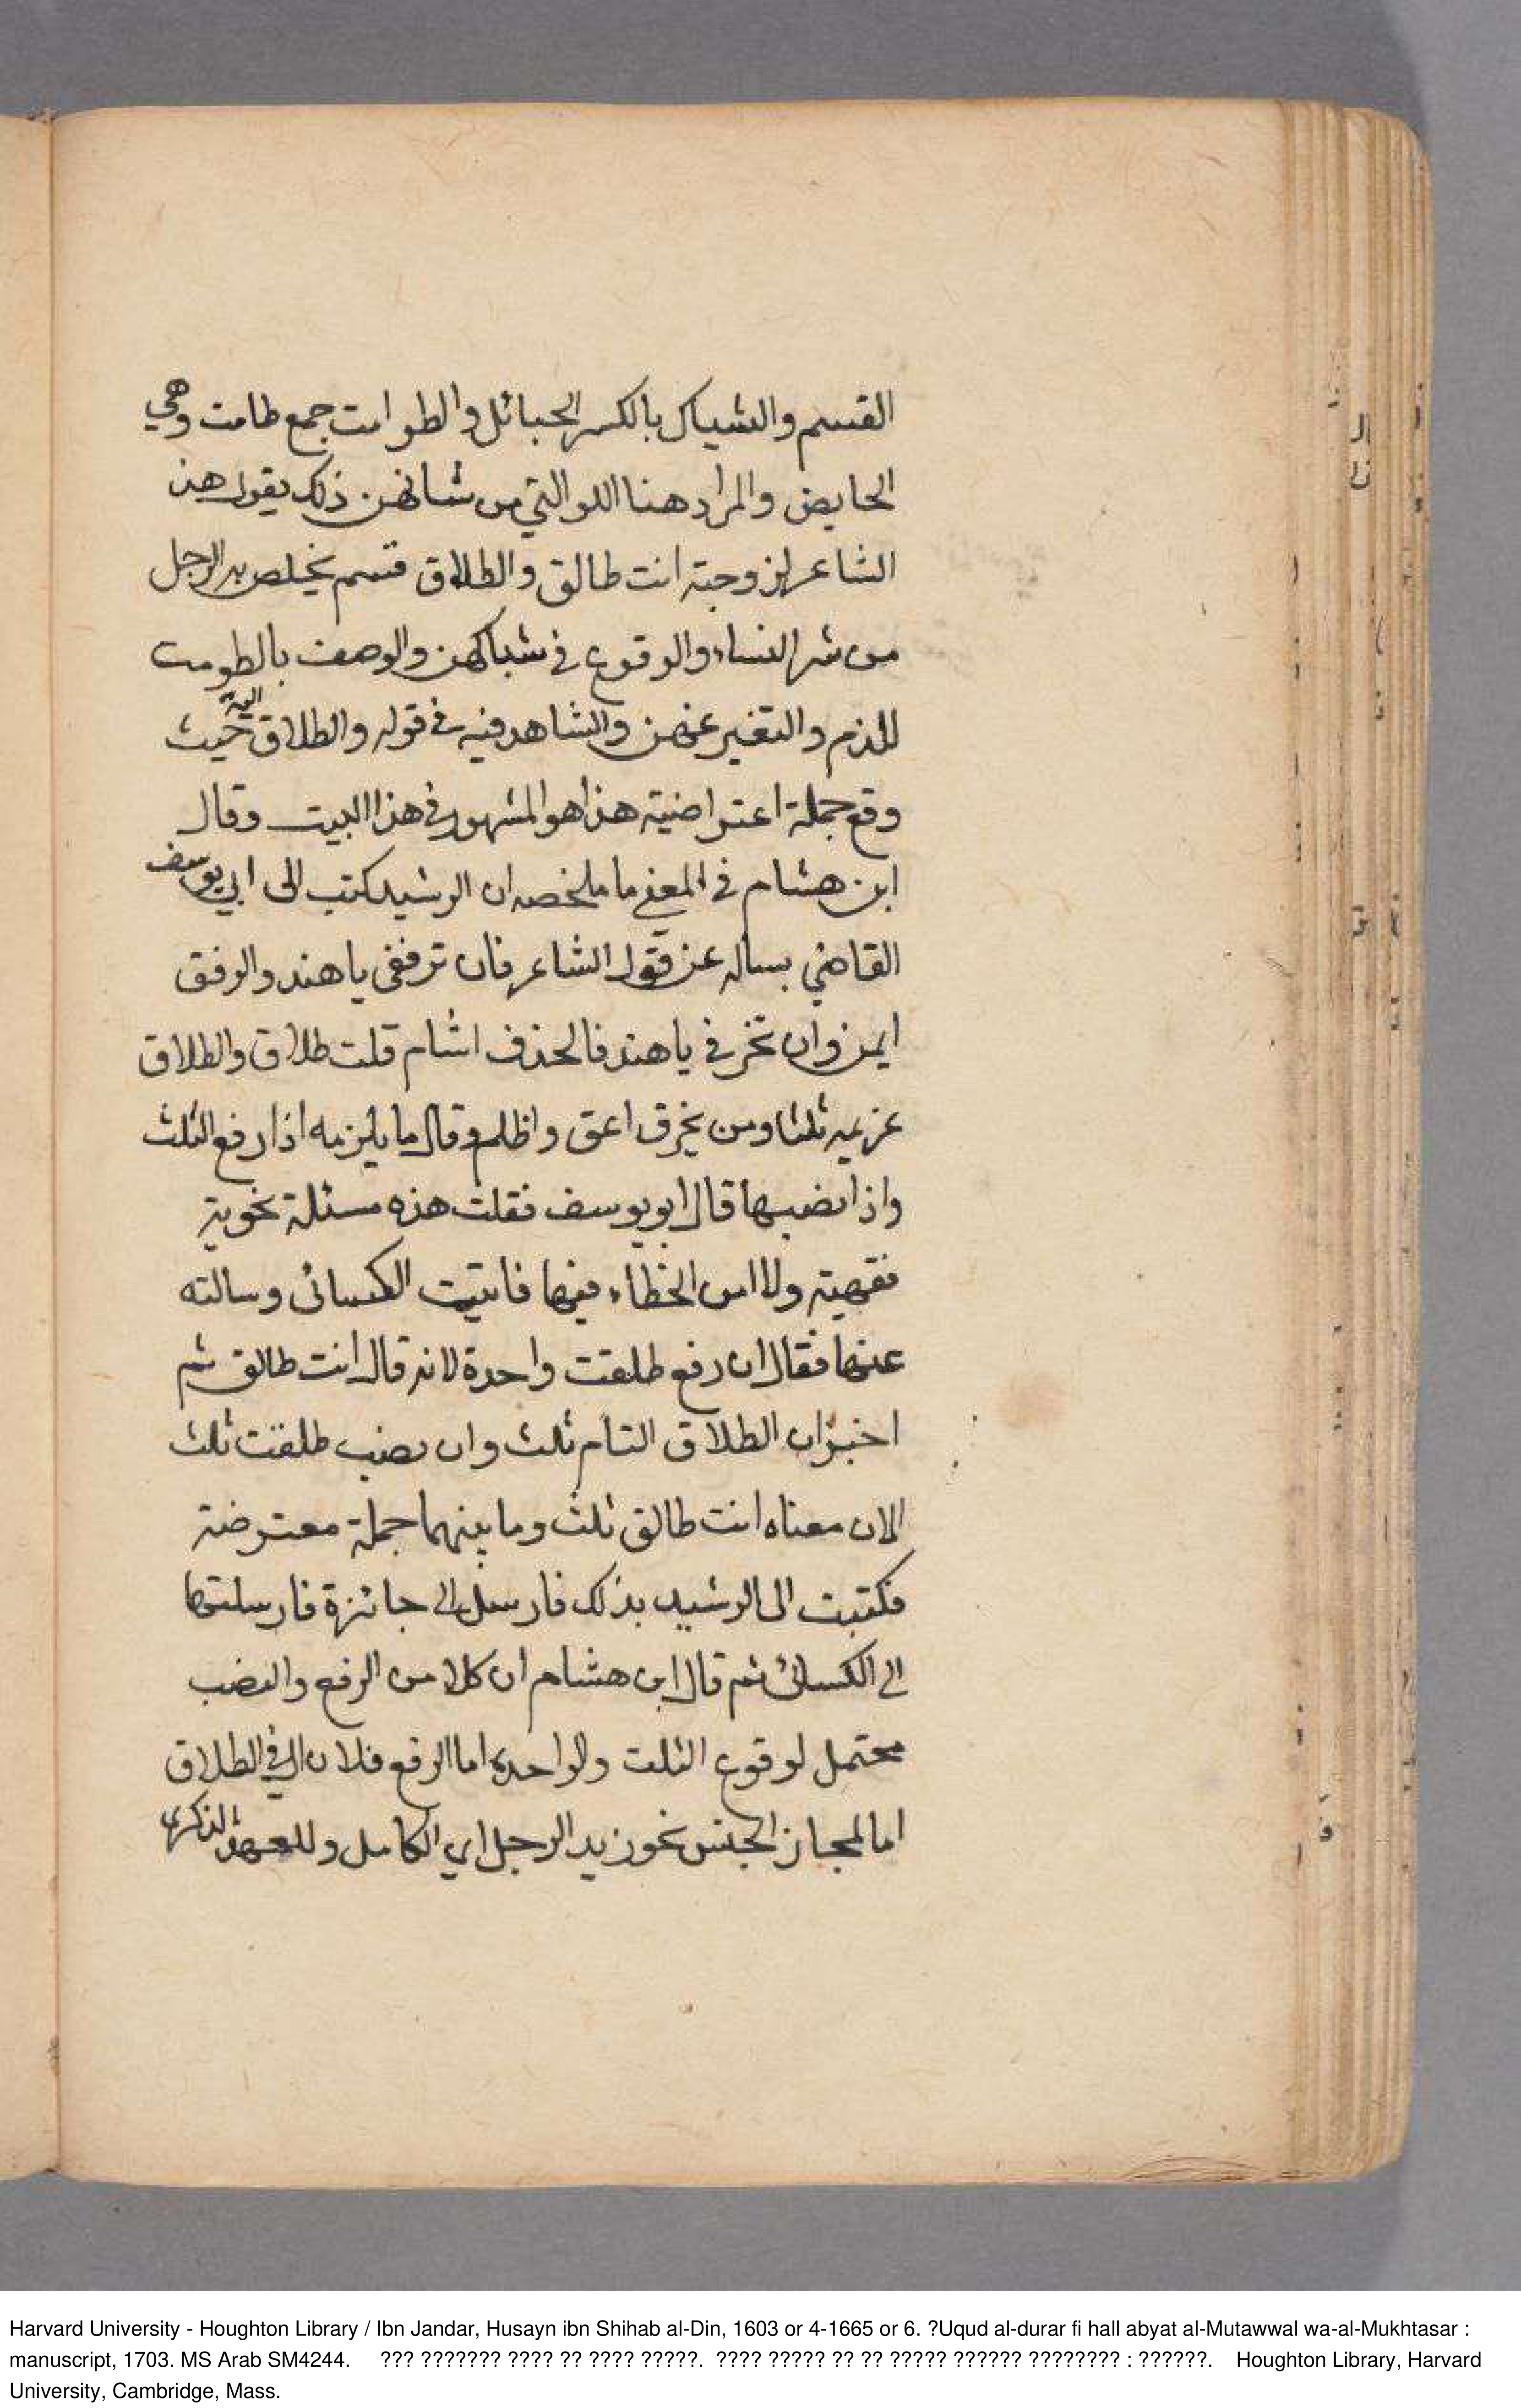 القسم والشباك بالكسر الحبائل والطوامت جمع طامت وهي
الحايض والمراد هنا اللواتي من شانهن ذلك يقول هذ
الشاعر لزوجته انت طالق والطلاق قسم يخلص به الرجل
من شر النساء والوقوع في شباكهن والوصف بالطومت
للذم والتنفير عنهن والشاهد فيه في قوله والطلاق الية حيث
وقع جملة اعتراضية هذا هو المشهور في هذا البيت وقال
ابن هشام في المغني ما ملخصه ان الرشيد كتب الى ابي يوسف
القاضي يساله عن قول الشاعر فان ترفقي يا هند والرفق
ايمن وان تخرفي يا هند فالحذف اشام قلت طلاق والطلاق
عزيمه ثلثا ومن يخرق اعق واظلم وقال ما يلزمه اذا رفع الثلث
واذا نصبها قال ابو يوسف فقلت هذه مسئلة نحوية
فقهية ولا امن الخطاء فيها فاتيت الكسائى وسالته
عنها فقال ان رفع طلقت واحدة لانه قال انت طالق ثم
اخبر ان الطلاق التام ثلث وان نصب طلقت ثلث
الان معناه انت طالق ثلث وما بينهما جملة معترضة
فكتبت الى الرشيد بذلك فارسل الي جائزة فارسلتها
الي الكسائى ثم قال ابن هشام ان كلا من الرفع والنصب
محتمل لوقوع الثلت والواحدة اما الرفع فلان ال في الطلاق
اما لمجاز الجنس نحو زيد الرجل اي الكامل وللعهد الذكرى
Harvard University - Houghton Library / Ibn Jandar, Husayn ibn Shihab al-Din, 1603 or 4-1665 or 6. ?Uqud al-durar fi hall abyat al-Mutawwal wa-al-Mukhtasar :
manuscript, 1703. MS Arab SM4244. ??? ??????? ???? ?? ???? ?????. ???? ????? ?? ?? ????? ?????? ???????? : ??????. Houghton Library, Harvard
University, Cambridge, Mass.